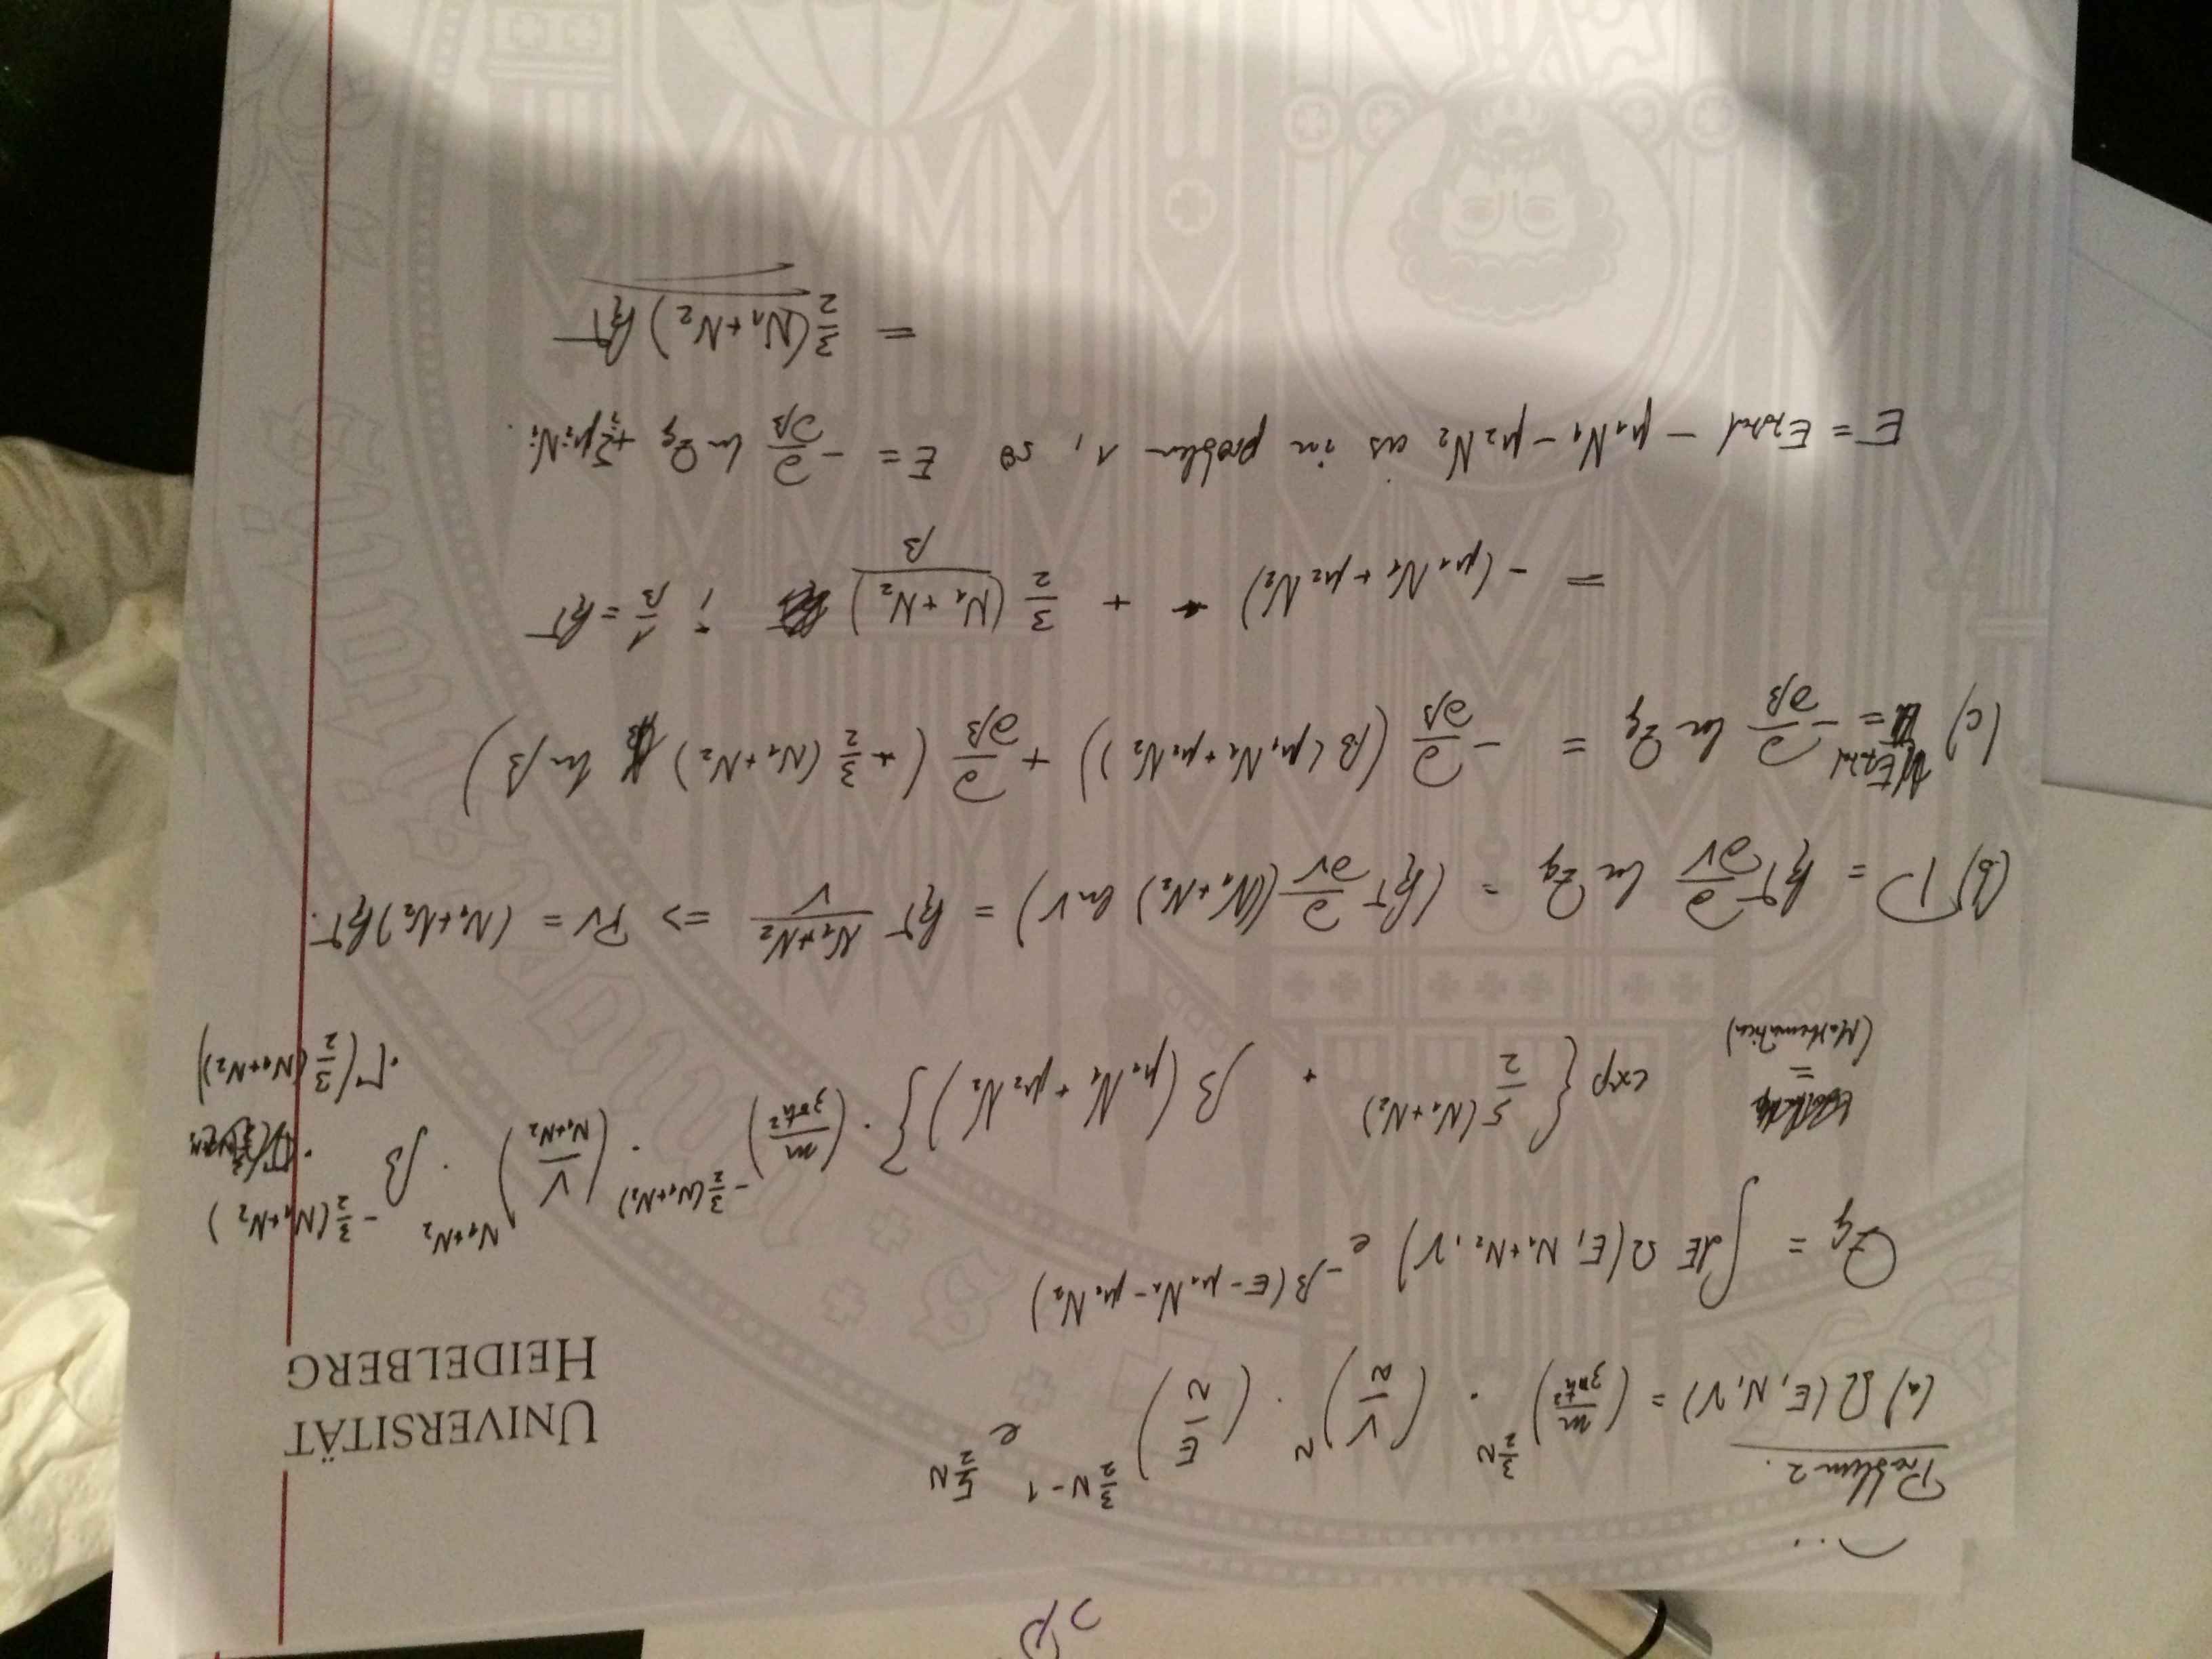 Problem 2.
UNIVERSITÄT
HEIDELBERG
(a) Ω(E, N, V) = (m/3πħ²)^(3/2 N) · (V/N)^N · (E/N)^(3/2 N - 1) e^(5/2 N)
Zg = ∫dE Ω(E, N₁+N₂, V) e^(-β(E - μ₁N₁ - μ₂N₂))
= (Mathematica) exp{5/2 (N₁+N₂) + β(μ₁N₁ + μ₂N₂)} · (m/3πħ²)^(-3/2 (N₁+N₂)) · (V/N₁+N₂)^(N₁+N₂) · β^(-3/2 (N₁+N₂)) · Γ(3/2 (N₁+N₂))
(b) P = kT ∂/∂V ln Zg = (kT ∂/∂V ((N₁+N₂) ln V) = kT N₁+N₂/V => PV = (N₁+N₂)kT.
(c) Etotal = -∂/∂β ln Zg = -∂/∂β (β(μ₁N₁+μ₂N₂)) + ∂/∂β (+ 3/2 (N₁+N₂) ln β)
= -(μ₁N₁ + μ₂N₂) + 3/2 (N₁+N₂)/β ; 1/β = kT
E = Etotal - μ₁N₁ - μ₂N₂ as in problem 1, so E = -∂/∂β ln Zg + Σᵢ μᵢNᵢ.
= 3/2 (N₁+N₂) kT